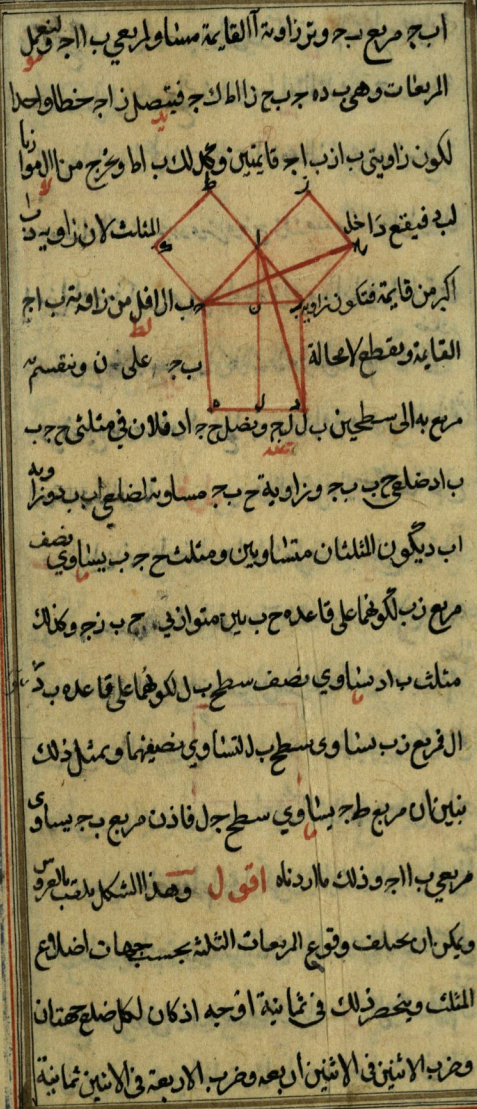 اب ج مربع ب ج وتر زاوية ا القايمة مساو لمربعي ب ا ا ج ولنعمل
المربعات وهي ب ده ج ب ح ز ا ا ط ك ج فيتصل ز ا ج خطا واحدا
لكون زاويتي ب ا ز ب ا ج قايمتين وكذلك ب ا ط ويخرج من ا ال موازيا
لب د فيقع داخل المثلث لان زاوية د ب ا
اكبر من قايمة فتكون زاوية ب ا ل اقل من زاوية ب ا ج
القايمة ويقطع لا محالة ب ج على ن وينقسم به
مربع ب ه الى سطحين ب ل ل ج ونصل ح ج ا د فلان في مثلثي ح ج ب
ب ا د ضلعي ح ب ب ج وزاوية ح ب ج مساوية لضلعي ا ب ب د وزاوية
ا ب د يكون المثلثان متساويين ومثلث ح ج ب يساوي نصف
مربع ز ب لكونهما على قاعده ح ب بين متوازيي ح ب ز ج وكذلك
مثلث ب ا د يساوي نصف سطح ب ل لكونهما على قاعده ب د
ال فمربع ز ب يساوى سطح ب ل لتساوي نصفيهما وبمثل ذلك
نبين ان مربع ط ج يساوي سطح ج ل فاذن مربع ب ج يساوى
مربعي ب ا ا ج وذلك ما اردناه اقول وهذا الشكل ملقب بالعروس
ويمكن ان يختلف وقوع المربعات الثلثة بحسب جهات اضلاع
المثلث وينحصر ذلك في ثمانية اوجه اذ كان لكل ضلع جهتان
وضرب الاثنين في الاثنين اربعه وضرب الاربعة في الاثنين ثمانية